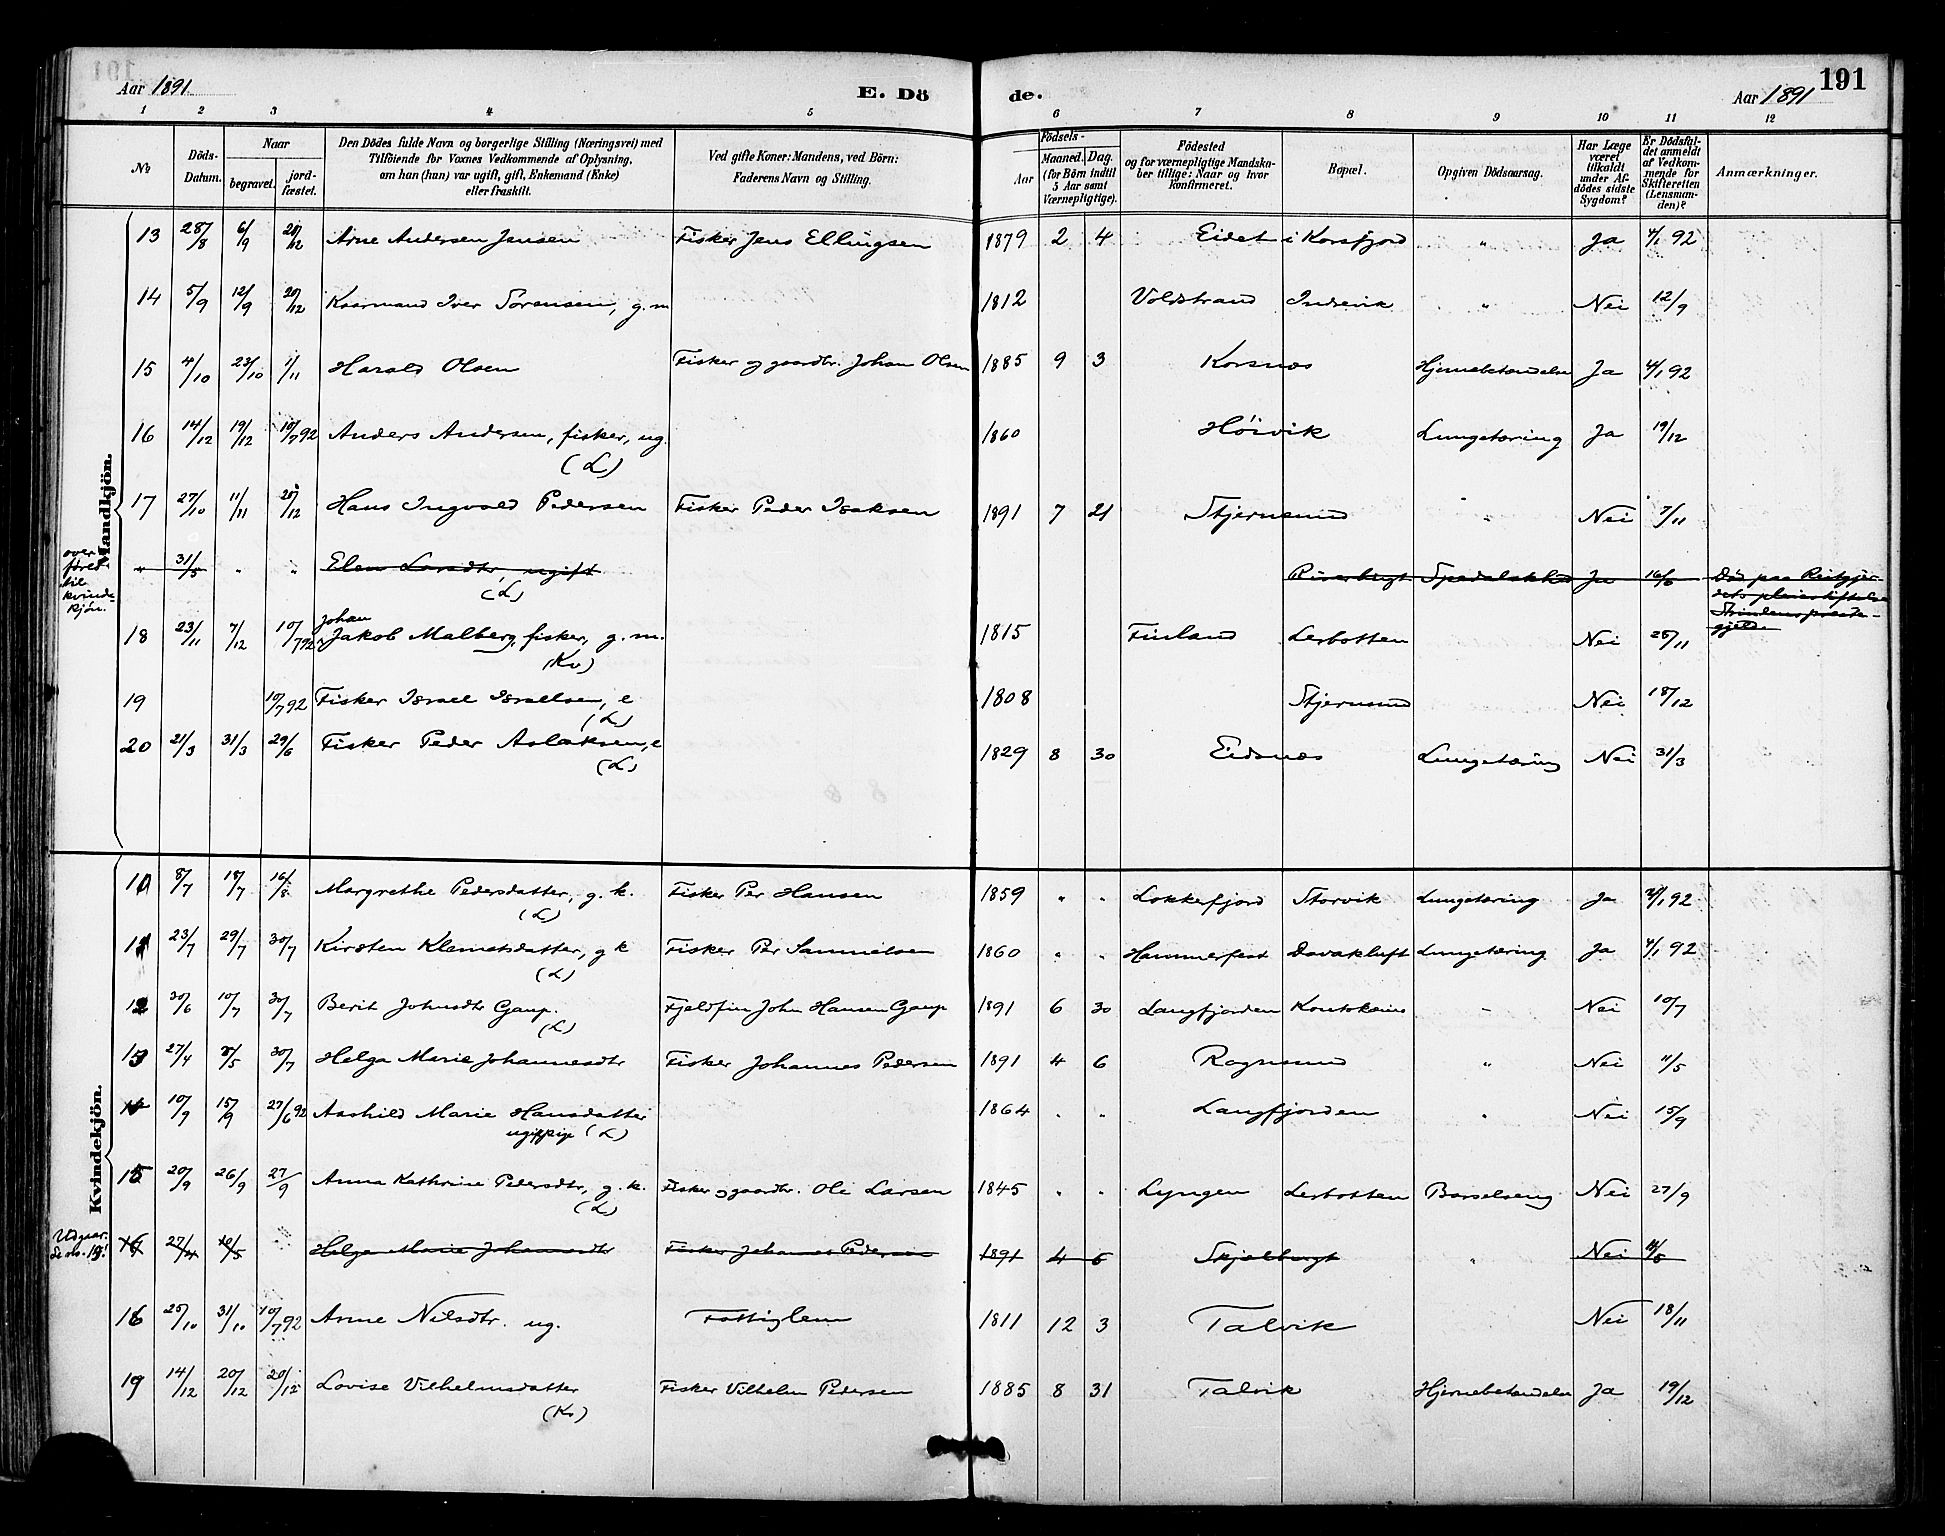 Aar 1891.
E. Dö
de.
Aar 1891
191
1 2 3 4 5 6 7 8 9 10 11 12
No
Döds-Datum.
Naar
begravet.
jord-fæstet.
Den Dödes fulde Navn og borgerlige Stilling (Næringsvei) med
Tilföiende for Voxnes Vedkommende af Oplysning,
om han (hun) var ugift, gift, Enkemand (Enke)
eller fraskilt.
Ved gifte Koner: Mandens, ved Börn:
Faderens Navn og Stilling.
Födsels-
Aar
Maaned. Dag.
(for Börn indtil
5 Aar samt
Værnepligtige).
Födested
og for værnepligtige Mandskaber tillige: Naar og hvor
konfirmeret.
Bopæl.
Opgiven Dödsaarsag.
Har Læge
været
tilkaldt
under Afdödes sidste
Sygdom?
Er Dödsfaldet anmeldt
af Vedkommende for
Skifteretten
(Lensmanden)?
Anmærkninger.
Mandkjön.
13 28/8 6/9 20/12 Arne Andersen Jensen Fisker Jens Ellingsen 1879 2 4 Eidet i Korsfjord " Ja 4/1 92
14 5/9 12/9 20/12 Kaarmand Iver Sörensen, g.m 1812 Voldstrand Indrevik " Nei 12/9
15 4/10 23/10 1/11 Harald Olsen Fisker og gaardbr. Johan Olsen 1885 9 3 Korsnæs Hjernebetændelse Ja 4/1 92
16 14/12 19/12 10/7 92 Anders Andersen, fisker, ug. 1860 Höivik Lungetæring Ja 19/12
(L)
17 27/10 11/11 20/12 Hans Ingvald Pedersen Fisker Peder Isaksen 1891 7 21 Stjernsund " Nei 7/11
over
føred
til
kvinde-
kjön.
" 31/5 " " Elen Larsdtr, ugift Spedalskhed Ja 16/6 Död paa Reitgjer-
(L)
dets pleiestiftelse
Strindens præste-
gjeld
Johan
18 23/11 7/12 10/7 92 Jakob Malberg, fisker, g.m. 1815 Finland Lerbotten Nei 28/11
(Kv)
19 10/7 92 Fisker Israel Israelsen, e 1808 Stjernsund Nei 18/12
(L)
20 21/3 31/3 29/6 Fisker Peder Aslaksen, e 1829 8 30 Eidsnæs Lungetæring Nei 31/3
(L)
Kvindekjön.
10 8/7 18/7 16/8 Margrethe Pedersdatter, g. k. Fisker Per Hansen 1859 " " Lokkefjord Storvik Lungetæring Ja 4/1 92
(L)
11 23/7 29/7 30/7 Kirsten Klemetsdatter, g k Fisker Per Samuelsen 1860 " " Hammerfest Davakluft Lungetæring Ja 4/1 92
(L)
12 30/6 10/7 30/7 Berit Johnsdtr Gaup. Fjeldfin John Hansen Gaup 1891 6 30 Langfjorden Koutokeino - Nei 10/7
(L)
13 27/4 8/5 30/7 Helga Marie Johannesdtr Fisker Johannes Pedersen 1891 4 6 Rognsund " Nei 11/5
14 10/9 15/9 27/6 92 Aashild Marie Hansdatter 1864 " " Langfjorden " Nei 15/9
ug. pige (L)
15 20/9 26/9 27/9 Anna Kathrine Pedersdtr, g. k. Fisker og gaardbr. Ole Larsen 1845 " " Lyngen Lerbotten Barselseng Nei 27/9
(L)
Udgaar.
Se no. 13!
16 27/4 10/5 Helga Marie Johannesdtr Fisker Johannes Pedersen 1891 4 6 Skjelbugt " Nei 11/5
16 25/10 31/10 10/7 92 Anne Nilsdtr. ug. Fattiglem 1811 12 3 Talvik Nei 18/11
19 14/12 20/12 20/12 Lovise Vilhelmsdatter Fisker Vilhelm Pedersen 1885 8 31 Talvik Hjernebetændelse Ja 19/12
(Kv)